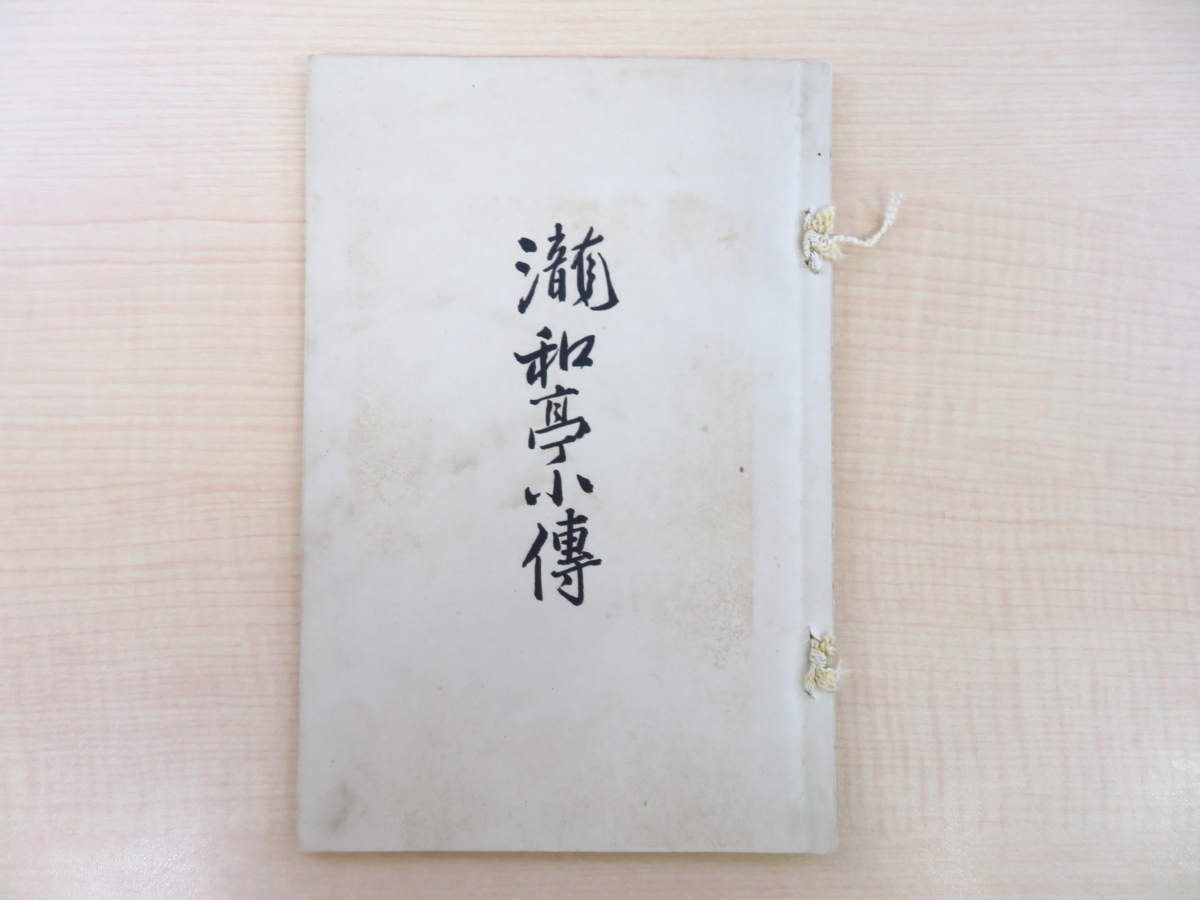 瀧和亭小傳